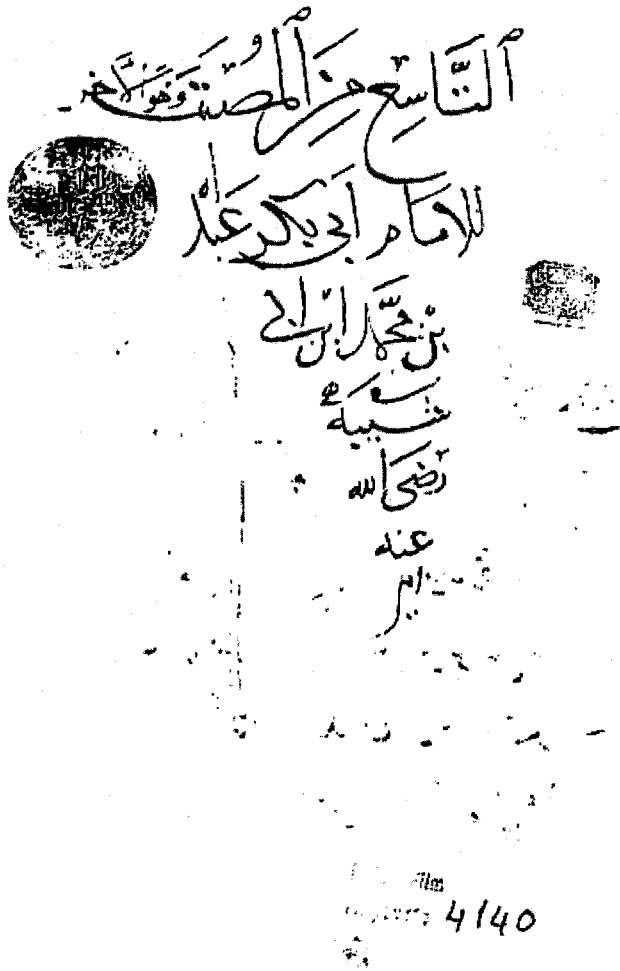 التاسع من المصنف وهو الآخر
للامام أبي بكر عبد
بن محمد ابن أبي
شيبة
رضي الله
عنه
Film
4140